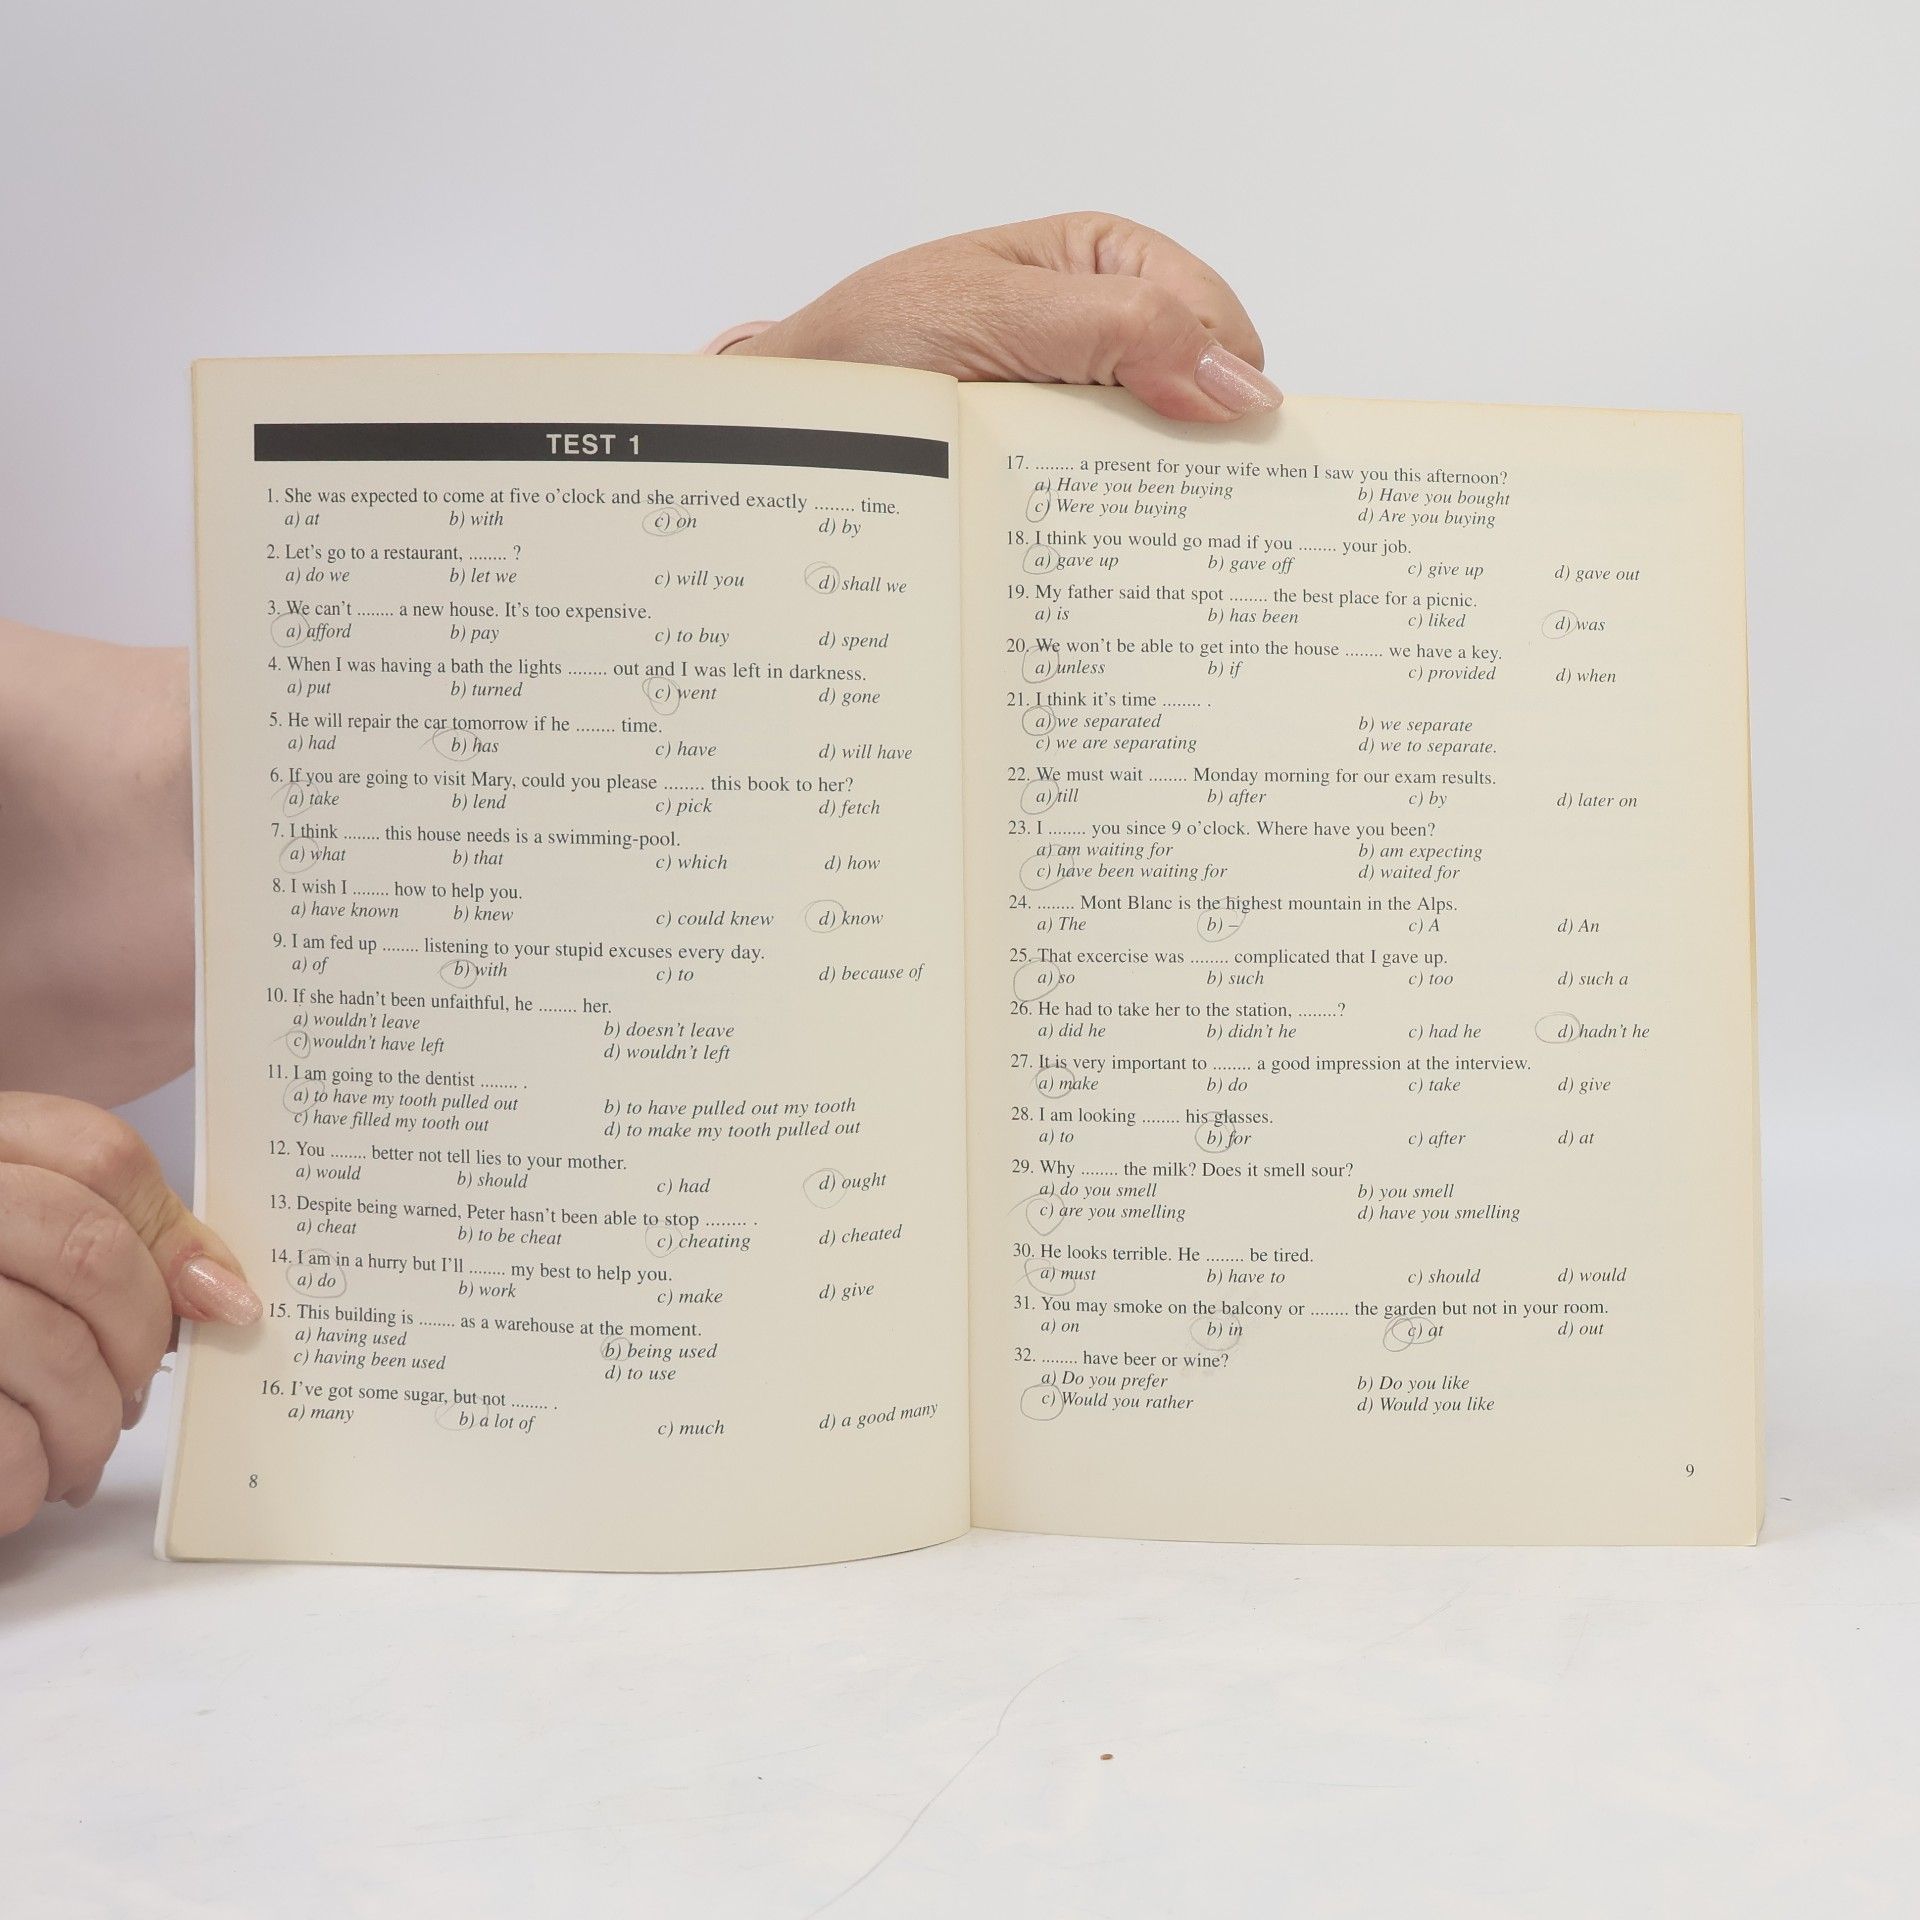 TEST 1
1. She was expected to come at five o'clock and she arrived exactly ........ time.
a) at b) with c) on d) by
2. Let's go to a restaurant, ........ ?
a) do we b) let we c) will you d) shall we
3. We can't ........ a new house. It's too expensive.
a) afford b) pay c) to buy d) spend
4. When I was having a bath the lights ........ out and I was left in darkness.
a) put b) turned c) went d) gone
5. He will repair the car tomorrow if he ........ time.
a) had b) has c) have d) will have
6. If you are going to visit Mary, could you please ........ this book to her?
a) take b) lend c) pick d) fetch
7. I think ........ this house needs is a swimming-pool.
a) what b) that c) which d) how
8. I wish I ........ how to help you.
a) have known b) knew c) could knew d) know
9. I am fed up ........ listening to your stupid excuses every day.
a) of b) with c) to d) because of
10. If she hadn't been unfaithful, he ........ her.
a) wouldn't leave b) doesn't leave
c) wouldn't have left d) wouldn't left
11. I am going to the dentist ........ .
a) to have my tooth pulled out b) to have pulled out my tooth
c) have filled my tooth out d) to make my tooth pulled out
12. You ........ better not tell lies to your mother.
a) would b) should c) had d) ought
13. Despite being warned, Peter hasn't been able to stop ........ .
a) cheat b) to be cheat c) cheating d) cheated
14. I am in a hurry but I'll ........ my best to help you.
a) do b) work c) make d) give
15. This building is ........ as a warehouse at the moment.
a) having used b) being used
c) having been used d) to use
16. I've got some sugar, but not ........ .
a) many b) a lot of c) much d) a good many
8
17. ........ a present for your wife when I saw you this afternoon?
a) Have you been buying b) Have you bought
c) Were you buying d) Are you buying
18. I think you would go mad if you ........ your job.
a) gave up b) gave off c) give up d) gave out
19. My father said that spot ........ the best place for a picnic.
a) is b) has been c) liked d) was
20. We won't be able to get into the house ........ we have a key.
a) unless b) if c) provided d) when
21. I think it's time ........ .
a) we separated b) we separate
c) we are separating d) we to separate.
22. We must wait ........ Monday morning for our exam results.
a) till b) after c) by d) later on
23. I ........ you since 9 o'clock. Where have you been?
a) am waiting for b) am expecting
c) have been waiting for d) waited for
24. ........ Mont Blanc is the highest mountain in the Alps.
a) The b) – c) A d) An
25. That excercise was ........ complicated that I gave up.
a) so b) such c) too d) such a
26. He had to take her to the station, ........?
a) did he b) didn't he c) had he d) hadn't he
27. It is very important to ........ a good impression at the interview.
a) make b) do c) take d) give
28. I am looking ........ his glasses.
a) to b) for c) after d) at
29. Why ........ the milk? Does it smell sour?
a) do you smell b) you smell
c) are you smelling d) have you smelling
30. He looks terrible. He ........ be tired.
a) must b) have to c) should d) would
31. You may smoke on the balcony or ........ the garden but not in your room.
a) on b) in c) at d) out
32. ........ have beer or wine?
a) Do you prefer b) Do you like
c) Would you rather d) Would you like
9